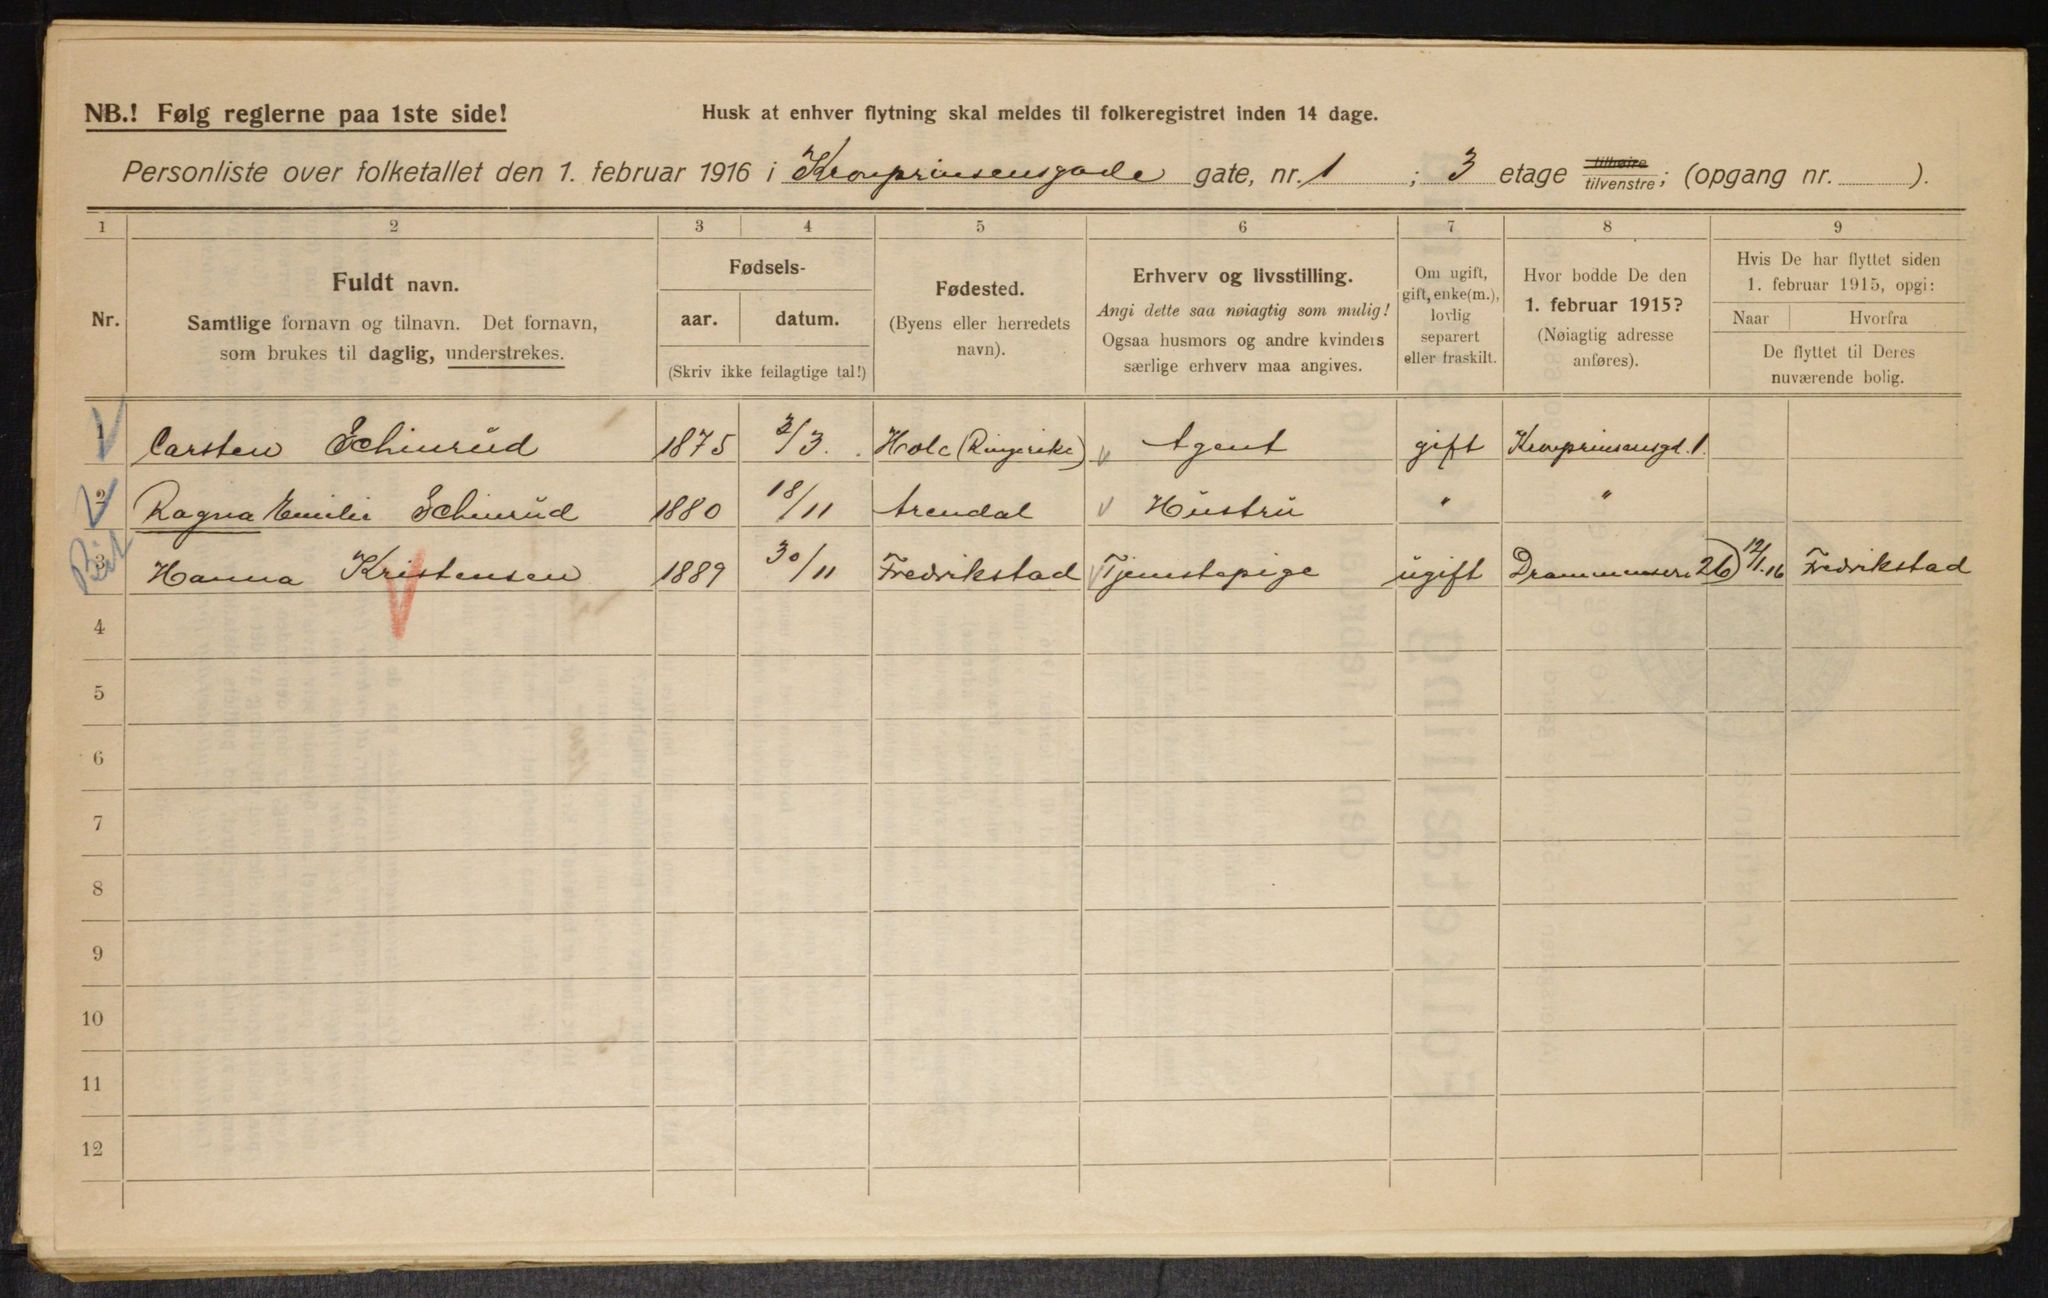 NB.! Følg reglerne paa 1ste side!
Husk at enhver flytning skal meldes til folkeregistret inden 14 dage.
Personliste over folketallet den 1. februar 1916 i Kronprinsensgade gate, nr. 1 ; 3 etage tilhøire tilvenstre; (opgang nr. ).
1 2 3 4 5 6 7 8 9
Nr.
Fuldt navn.
Samtlige fornavn og tilnavn. Det fornavn,
som brukes til daglig, understrekes.
Fødsels-
aar. datum.
(Skriv ikke feilagtige tal!)
Fødested.
(Byens eller herredets
navn).
Erhverv og livsstilling.
Angi dette saa nøiagtig som mulig!
Ogsaa husmors og andre kvinders
særlige erhverv maa angives.
Om ugift,
gift, enke(m.),
lovlig
separert
eller fraskilt.
Hvor bodde De den
1. februar 1915?
(Nøiagtig adresse
anføres).
Hvis De har flyttet siden
1. februar 1915, opgi:
Naar Hvorfra
De flyttet til Deres
nuværende bolig.
1 Carsten Schinrud 1875 3/3. Hole (Ringerike) Agent gift Kronprinsensgd. 1.
2 Ragna Emilie Schinrud 1880 18/11 Arendal Hustru " "
3 Hanna Kristensen 1889 30/11 Fredrikstad Tjenstepige ugift 26 12/1.16 Fredrikstad
4
5
6
7
8
9
10
11
12